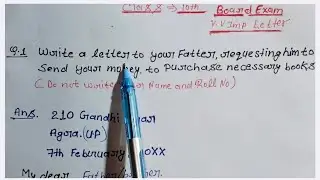 Class ⇒ 10th
Board Exam
V.V.Imp Letter
Q.1 Write a letter to your Fatter, requesting him to
Send your money, to purchase necessary books
(Do not write your Name and Roll No)
Ans. 210 Gandhi
Agra. (UP)
7th Feburary
My dear Father